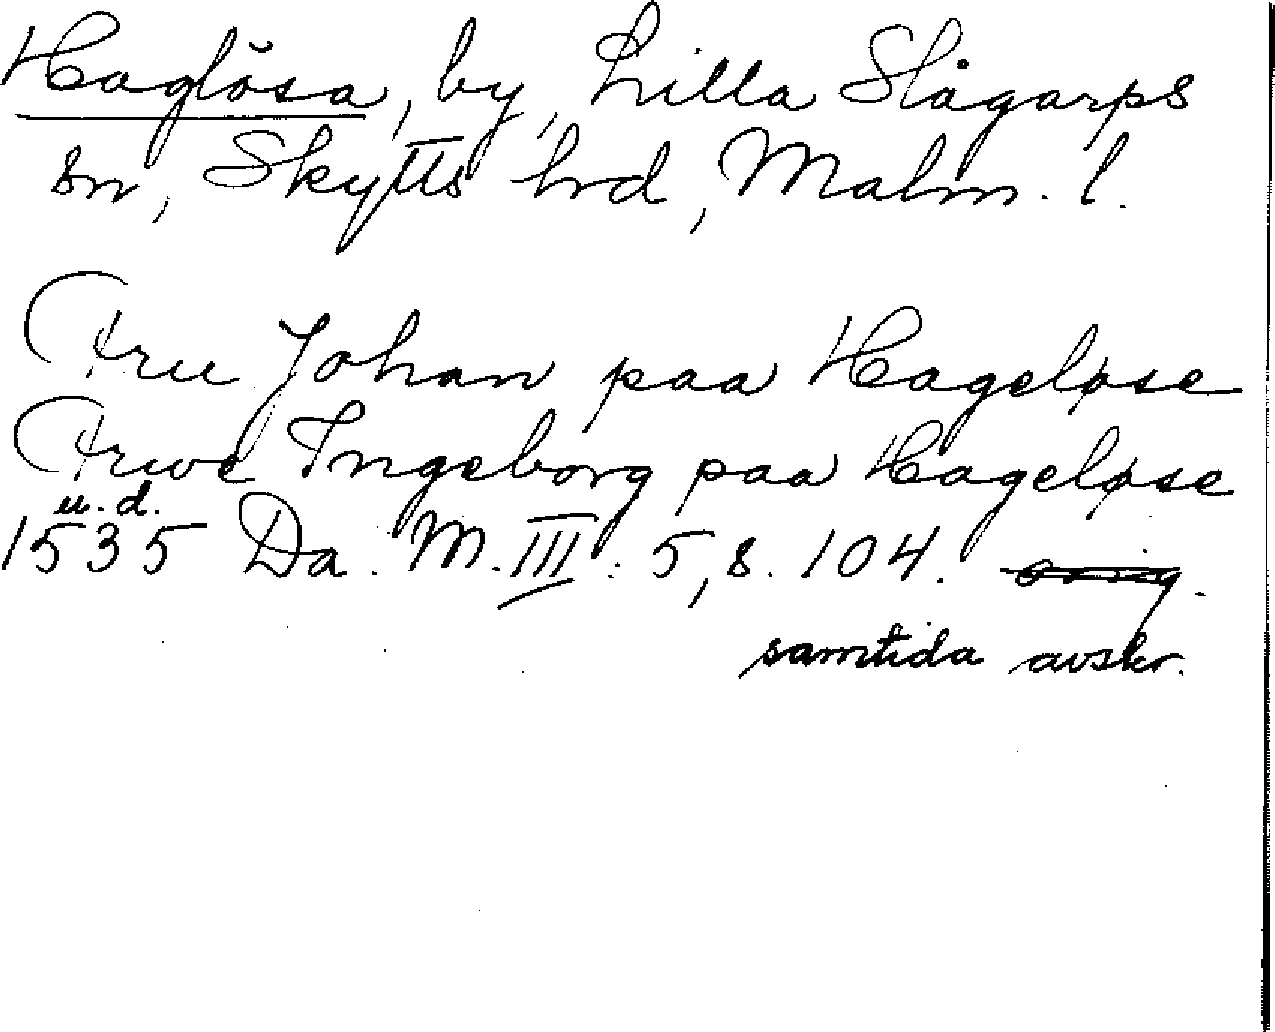 Haglösa, by, Lilla Slågarps
sn, Skytts hrd, Malm. l.
Fru Johan paa Hageløse
Frwe Ingeborg paa Hageløse
u. d.
1535 Da. M. III: 5, s. 104. orig.
samtida avskr.